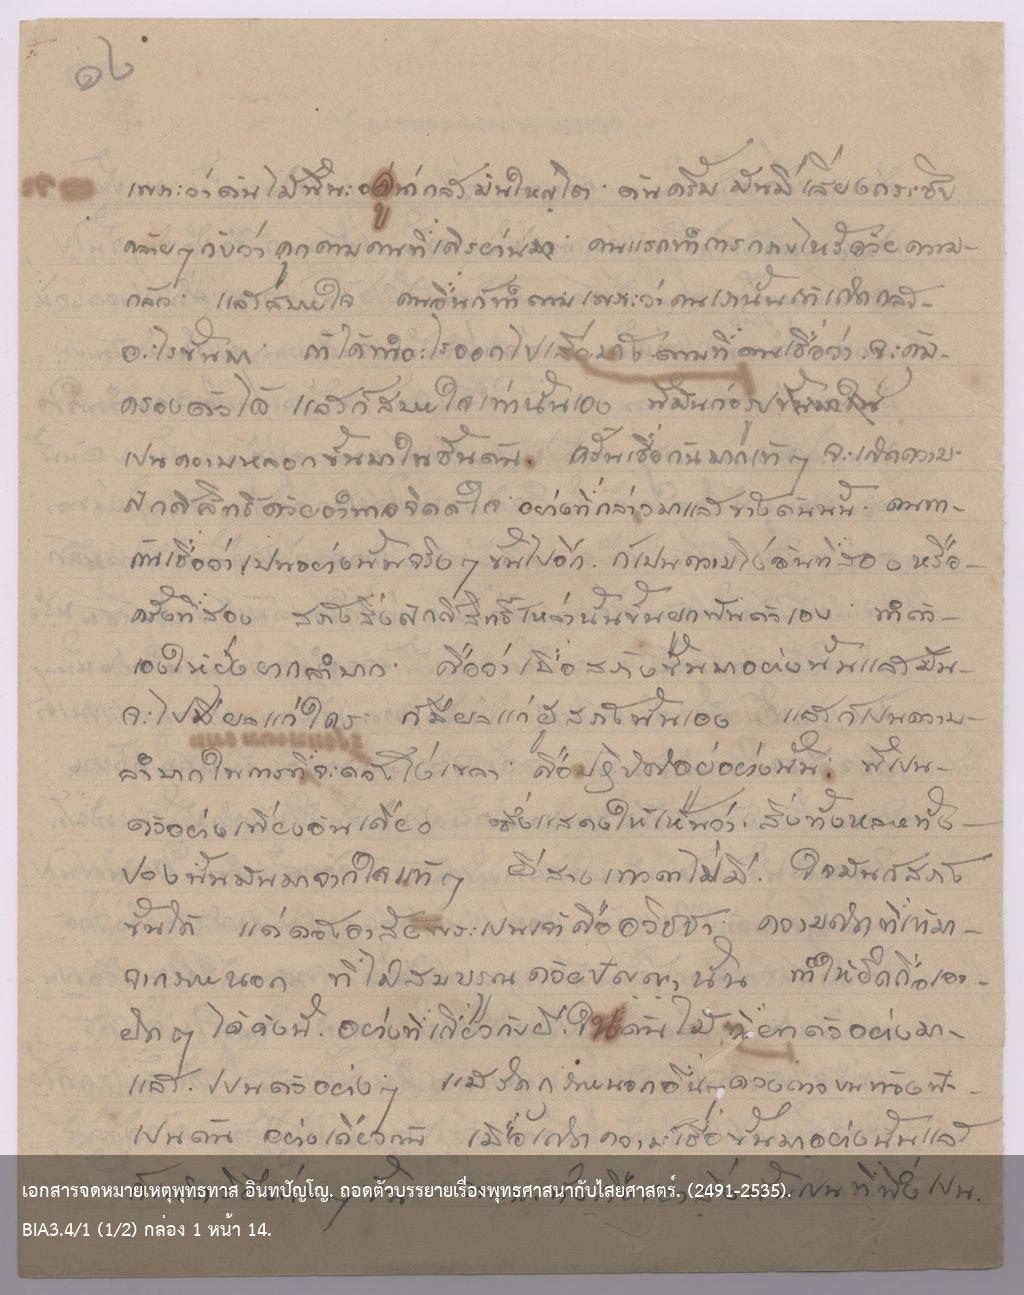 ๑๖
เพราะว่าต้นไม้นี้น่ากลัว มันใหญ่โต ต้นครึ้ม มันมีเสียงกระซิบ
คล้ายๆกับว่าคุกคามคนที่เดิรผ่านมา คนแรกทำการกราบไหว้ด้วยความ-
กลัว แล้วสบายใจ คนอื่นก็ทำตาม เพราะว่าคนเรานั้นถ้าเกิดกลัว-
อะไรขึ้นมา ถ้าได้ทำอะไรออกไปเสียบ้าง ตามที่ตนเชื่อว่า จะคุ้ม-
ครองตัวได้ แล้วก็สบายใจเท่านั้นเอง นี่มันก่อรูปขึ้นมาใน
เปนความหลอกขึ้นมาในชั้นต้น. ครั้นเชื่อกันมากเข้าๆ จะเกิดความ-
ศักดิ์สิทธิ์ด้วยอำนาจจิตต์ใจ อย่างที่กล่าวมาแล้วข้างต้นนั้น คนพา-
กันเชื่อว่าเปนอย่างนั้นจริงๆ ขึ้นไปอีก. ก็เปนความโง่อันที่สอง หรือ-
ครั้งที่สอง สร้างสิ่งศักดิ์สิทธิ์เหล่านั้นขึ้นผูกพันตัวเอง ทำตัว-
เองให้ยุ่งยากลำบาก คือว่า เมื่อสร้างขึ้นมาอย่างนั้นแล้วมัน-
จะไปมีผลแก่ใคร ก็มีผลแก่ผู้สร้างนั้นเอง แล้วก็เปนความ-
ลำบากในการที่จะต้องโง่เขลา คือปฏิบัติอยู่อย่างนั้น. นี่เปน-
ตัวอย่างเพียงอันเดียว ซึ่งแสดงให้เห็นว่า สิ่งทั้งหลายทั้ง-
ปวงนั้นมันมาจากใจแท้ๆ ผีสางเทวดาไม่มี. ใจมันก็สร้าง
ขึ้นได้ แต่ต้องอาศัยพระเปนเจ้าคืออวิชชา ความคิดที่เข้ามา-
จากภายนอก ที่ไม่สมบูรณด้วยปัญญานั้น ทำให้ยึดถือเอา-
ผิดๆ ได้ดังนี้ อย่างที่เกี่ยวกับผีในต้นไม้ ที่ยกตัวอย่างมา-
แล้ว เปนตัวอย่างๆ แม้วัตถุภายนอกอื่นๆ ดวงดาวบนท้องฟ้า-
เปนต้น อย่างเดียวกัน เมื่อเกิดความเชื่อขึ้นมาอย่างนั้นแล้ว
เอกสารจดหมายเหตุพุทธทาส อินทปัญโญ. ถอดตัวบรรยายเรื่องพุทธศาสนากับไสยศาสตร์. (2491-2535).
BIA3.4/1 (1/2) กล่อง 1 หน้า 14.